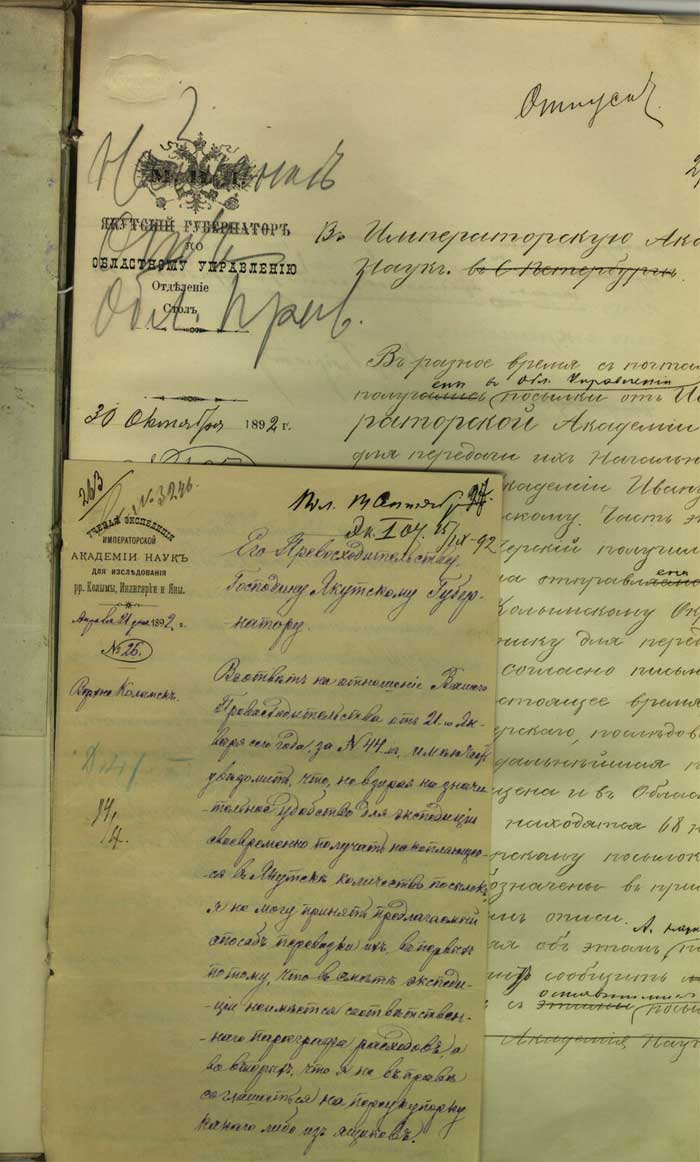 Отпускъ
М. В. Д.
ЯКУТСКІЙ ГУБЕРНАТОРЪ
ПО
ОБЛАСТНОМУ УПРАВЛЕНІЮ
Отдѣленіе
Столъ
Обл. Прав.
30 Октября 1892 г.
Въ Императорскую Ака
Наукъ. въ С Петербургъ.
Въ разное время съ почтами
ены въ Обл. Управленіи
получались посылки отъ Им
раторской Академіи
для передачи ихъ Начальн
Академіи Иван
скому. Часть э
черскій получил
на отправл
Колымскому Окр
нику для перед
согласно письм
стоящее время
рскаго, послѣдов
дальнѣйшая п
щена и въ Облас
находятся 68 п
нскому посылок
означены въ при
мъ описи.
ая объ этомъ
сообщить
оставшимися
съ посы
Академія Наук
263
№ 3246.
УЧЕНАЯ ЭКСПЕДИЦІЯ
ИМПЕРАТОРСКОЙ
АКАДЕМІИ НАУКЪ
ДЛЯ ИЗСЛѢДОВАНІЯ
рр. Колымы, Индигирки и Яны.
Апрѣля 21 дня 1892 г.
№ 26.
Верхне Колымскъ.
Пол. 14 Сентября
Его Превосходительству
Господину Якутскому Губер-
-натору.
Въ отвѣтъ на отношеніе Вашего
Превосходительства отъ 21.го Ян-
варя сего года, за N 44.мъ, имѣю честь
увѣдомить, что, не взирая на значи-
-тельное удобство для экспедиціи
своевременно получить накопляющее-
-ся въ Якутскѣ количество посылокъ,
я не могу принять предлагаемый
способъ перевозки ихъ, во первыхъ
потому, что въ смѣтѣ экспеди-
-ціи неимѣется соотвѣтствен-
-наго параграфа расходовъ, а
во вторыхъ, что я не въ правѣ
согласиться на переукупорку
какого либо изъ ящиковъ.